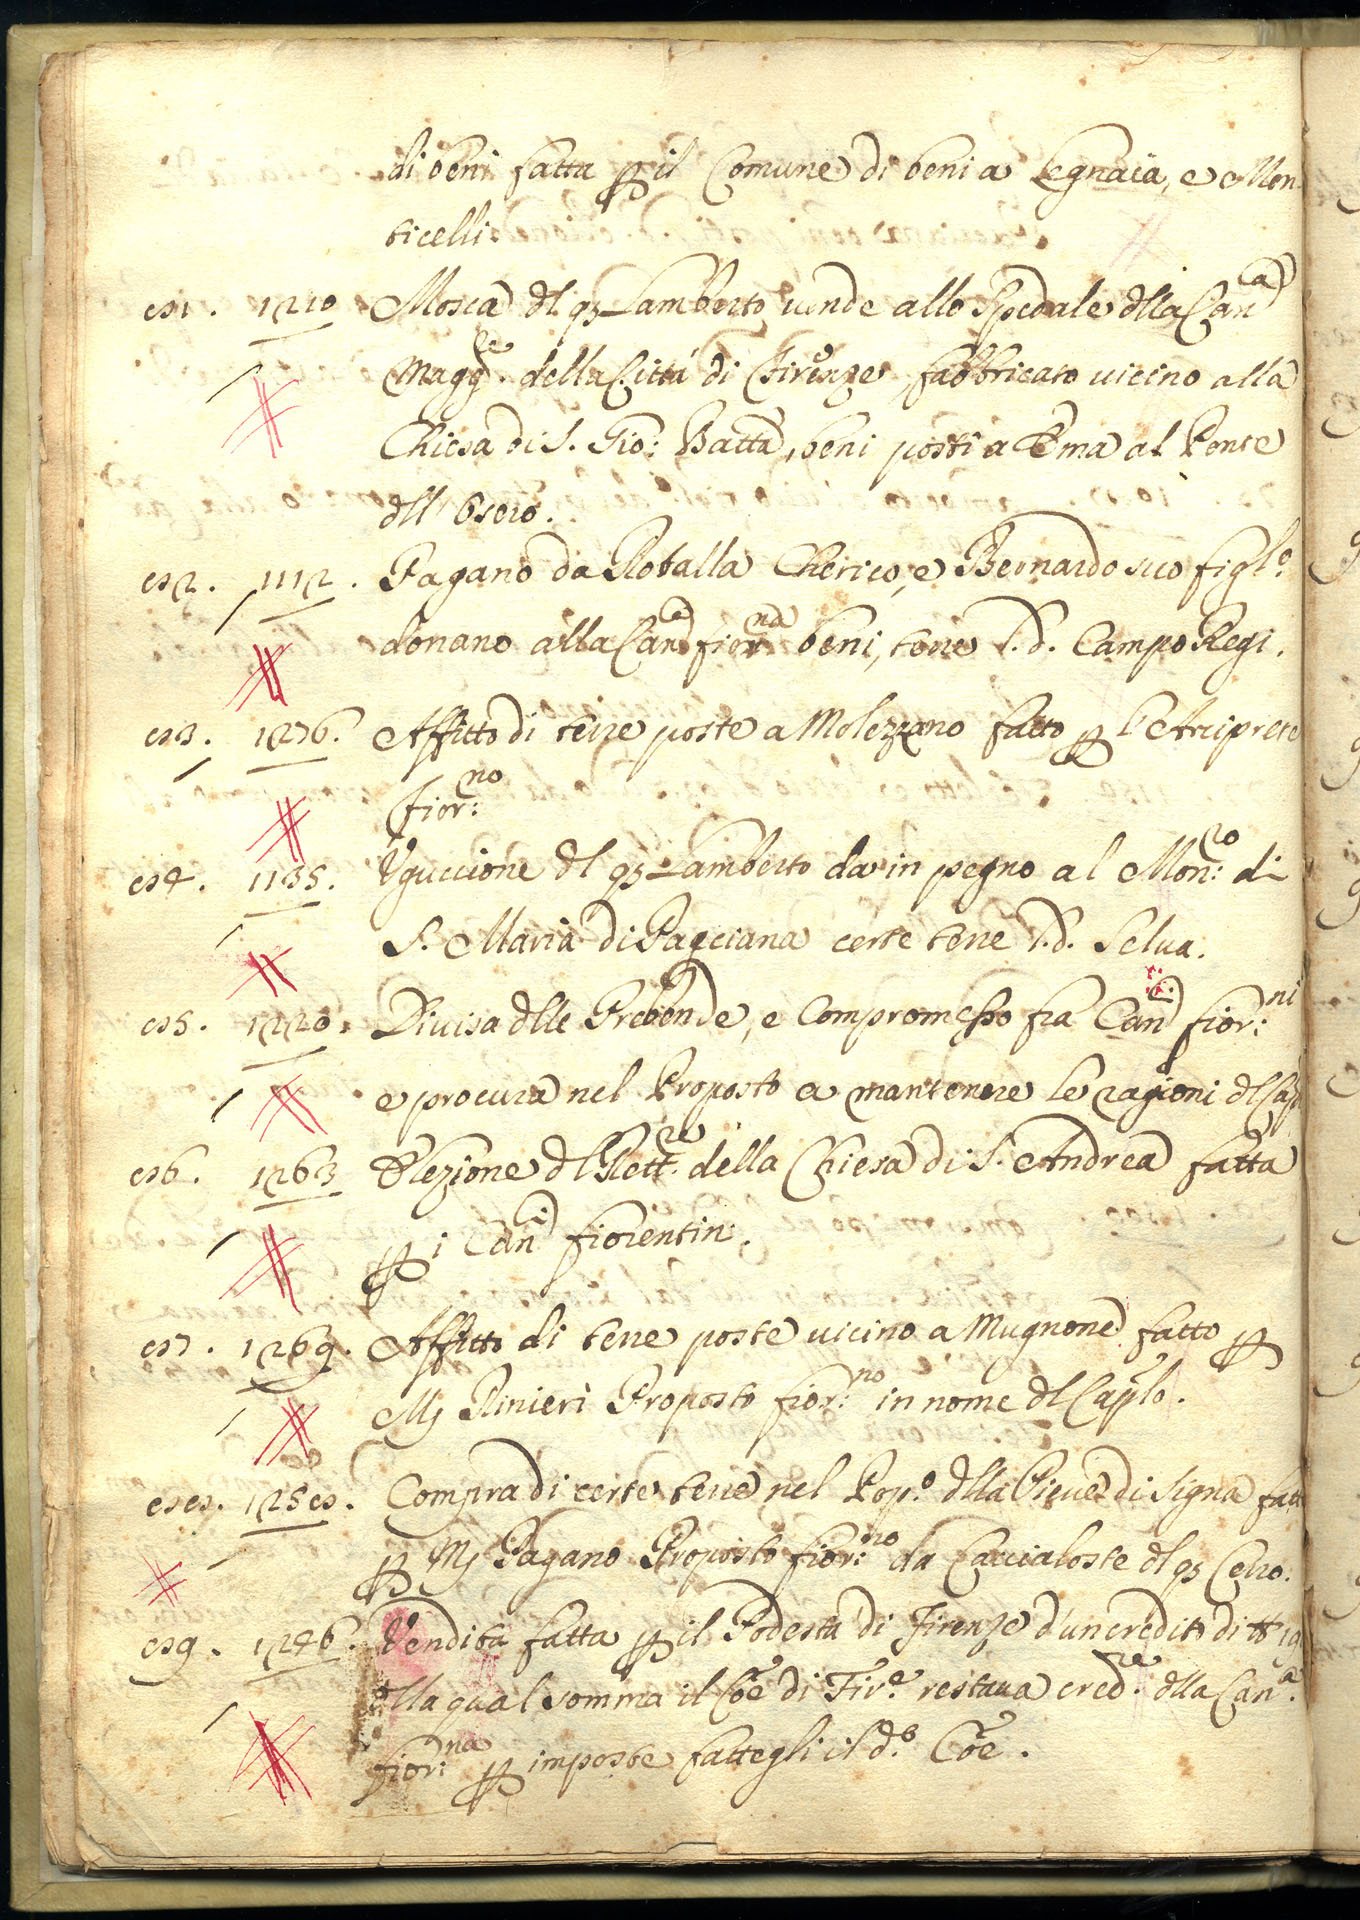 di beni fatta p il Comune di beni a Legnaia, e Mon
ticelli.
81. 1210 Mosca dl q3 Lamberto vende allo Spedale dlla Canca
Maggre. della Città di Firenze, fabbricato vicino alla
Chiesa di S. Gio: Batta, beni posti a Ema al Ponte
dll'
82. 1112. Pagano da Roballa Cherico, e Bernardo suo figlo.
donano alla Canca fiorna beni, terre l.d. Campo Regi.
83. 1276. Affitto di terre poste a Molezzano fatto p l'Arciprete
fior:no
84. 1135. Uguccione dl q3 Lamberto da in pegno al Mon:ro di
S. Maria di Pacciana certe terre l.d. Selva.
85. 1220. Divisa dlle Prebende, e Compromesso fra Canci fior:ni
e procura nel Proposto a mantenere le ragioni dl Cap
86. 1263 Elezione dl Rettre. della Chiesa di S. Andrea fatta
p i Canci fiorentin:
87. 1269. Affitto di terre poste vicino a Mugnone fatto p
Mj Rinieri Proposto fior:no in nome dl Caplo.
88. 1258. Compra di certe terre nel Popo. dlla Pieve di Signa fatt
p Mj Pagano Proposto fior:no da Caccialoste dl q3
89. 1246. Vendita fatta p il Podestà di Firenze d'un credito di
dlla qual somma il Coe di Fire. restava credre. dlla Cana.
fior:na p imposte fattegli il do. Coe.